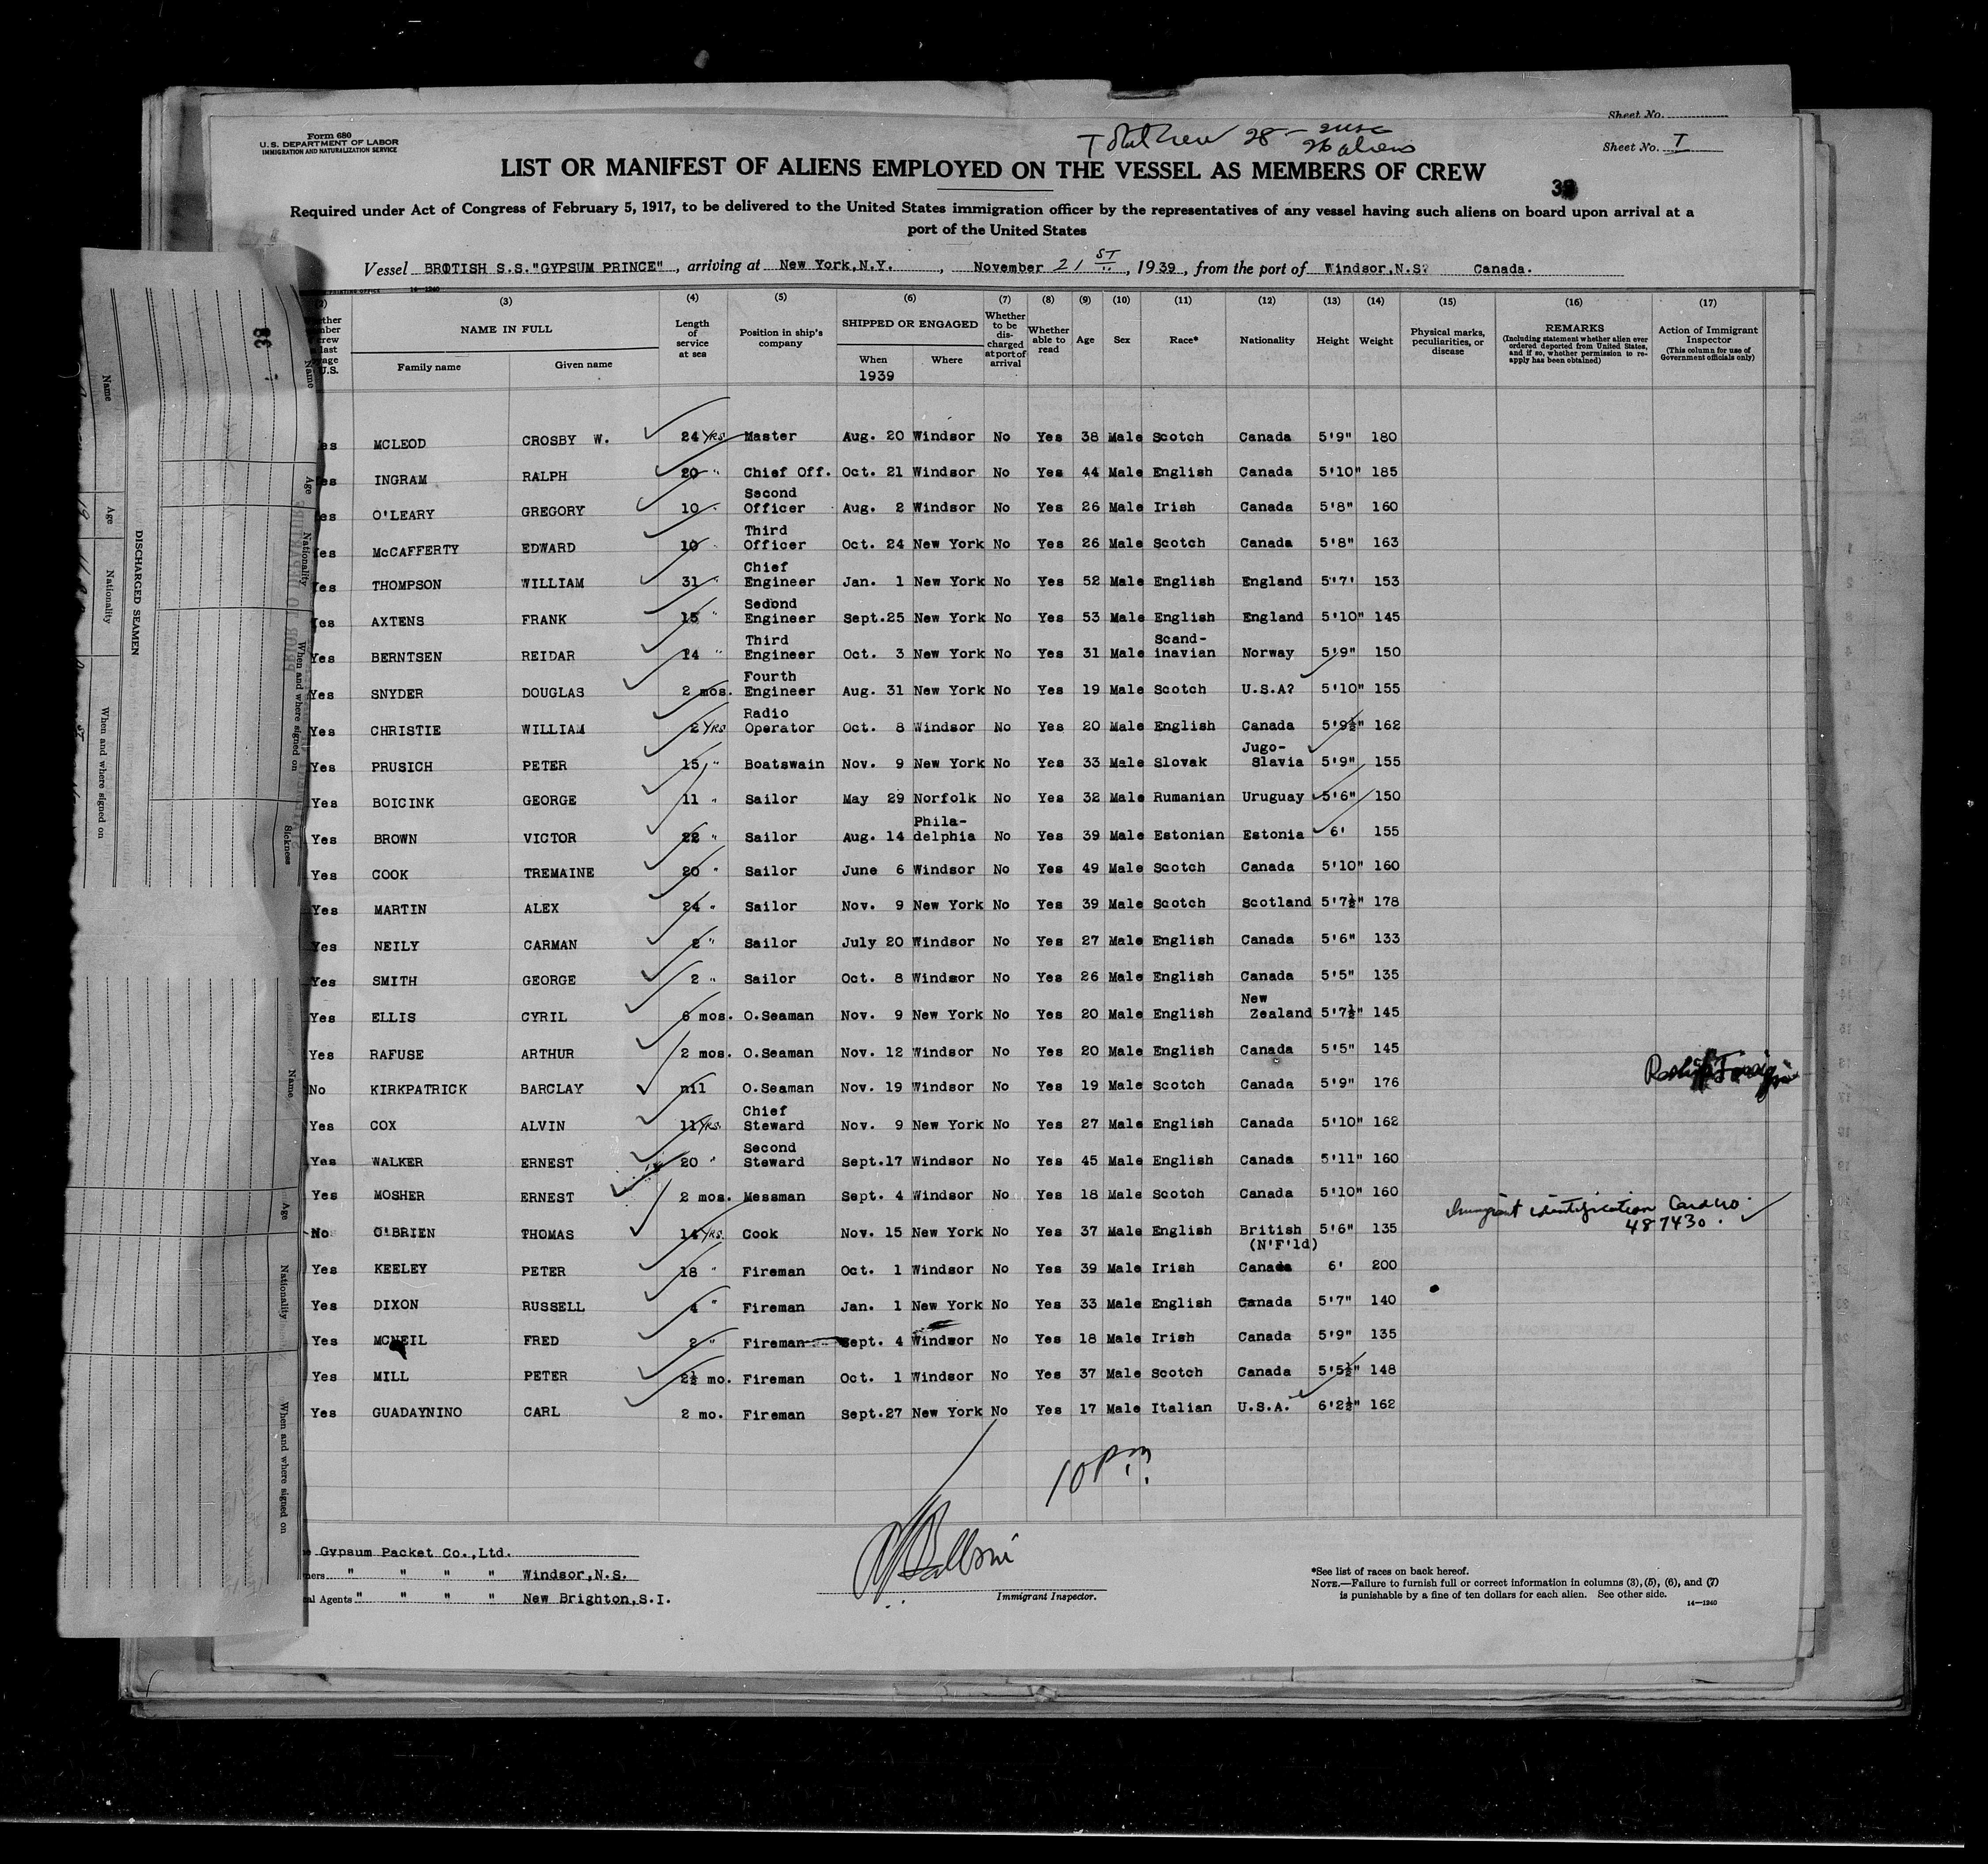 Sheet No.
Form 680
U.S. DEPARTMENT OF LABOR
IMMIGRATION AND NATURALIZATION SERVICE
Total Crew 28 - 2 USC
26 aliens
Sheet No. I
LIST OR MANIFEST OF ALIENS EMPLOYED ON THE VESSEL AS MEMBERS OF CREW
Required under Act of Congress of February 5, 1917, to be delivered to the United States immigration officer by the representatives of any vessel having such aliens on board upon arrival at a
port of the United States
Vessel BRITISH S.S."GYPSUM PRINCE", arriving at New York,N.Y., November 21 ST, 1939, from the port of Windsor,N.S? Canada.
(3) (4) (5) (6) (7) (8) (9) (10) (11) (12) (13) (14) (15) (16) (17)
NAME IN FULL
Family name Given name
Length of service at sea
Position in ship's company
SHIPPED OR ENGAGED
When Where
1939
Whether to be discharged at port of arrival
Whether able to read
Age
Sex
Race*
Nationality
Height
Weight
Physical marks, peculiarities, or disease
REMARKS
(Including statement whether alien ever ordered deported from United States, and if so, whether permission to reapply has been obtained)
Action of Immigrant Inspector
(This column for use of Government officials only)
es MCLEOD CROSBY W. 24 yrs Master Aug. 20 Windsor No Yes 38 Male Scotch Canada 5'9" 180
Yes INGRAM RALPH 20 " Chief Off. Oct. 21 Windsor No Yes 44 Male English Canada 5'10" 185
Yes O'LEARY GREGORY 10 " Second Officer Aug. 2 Windsor No Yes 26 Male Irish Canada 5'8" 160
Yes McCAFFERTY EDWARD 10 " Third Officer Oct. 24 New York No Yes 26 Male Scotch Canada 5'8" 163
Yes THOMPSON WILLIAM 31 " Chief Engineer Jan. 1 New York No Yes 52 Male English England 5'7' 153
Yes AXTENS FRANK 15 " Second Engineer Sept.25 New York No Yes 53 Male English England 5'10" 145
Yes BERNTSEN REIDAR 14 " Third Engineer Oct. 3 New York No Yes 31 Male Scand-inavian Norway 5'9" 150
Yes SNYDER DOUGLAS 2 mos. Fourth Engineer Aug. 31 New York No Yes 19 Male Scotch U.S.A? 5'10" 155
Yes CHRISTIE WILLIAM 2 yrs Radio Operator Oct. 8 Windsor No Yes 20 Male English Canada 5'9½" 162
Yes PRUSICH PETER 15 " Boatswain Nov. 9 New York No Yes 33 Male Slovak Jugo-Slavia 5'9" 155
Yes BOICINK GEORGE 11 " Sailor May 29 Norfolk No Yes 32 Male Rumanian Uruguay 5'6" 150
Yes BROWN VICTOR 22 " Sailor Aug. 14 Phila-delphia No Yes 39 Male Estonian Estonia 6' 155
Yes COOK TREMAINE 20 " Sailor June 6 Windsor No Yes 49 Male Scotch Canada 5'10" 160
Yes MARTIN ALEX 24 " Sailor Nov. 9 New York No Yes 39 Male Scotch Scotland 5'7½" 178
Yes NEILY CARMAN 2 " Sailor July 20 Windsor No Yes 27 Male English Canada 5'6" 133
Yes SMITH GEORGE 2 " Sailor Oct. 8 Windsor No Yes 26 Male English Canada 5'5" 135
Yes ELLIS CYRIL 6 mos. O.Seaman Nov. 9 New York No Yes 20 Male English New Zealand 5'7½" 145
Yes RAFUSE ARTHUR 2 mos. O.Seaman Nov. 12 Windsor No Yes 20 Male English Canada 5'5" 145
No KIRKPATRICK BARCLAY nil O.Seaman Nov. 19 Windsor No Yes 19 Male Scotch Canada 5'9" 176
Yes COX ALVIN 11 yrs. Chief Steward Nov. 9 New York No Yes 27 Male English Canada 5'10" 162
Yes WALKER ERNEST 20 " Second Steward Sept.17 Windsor No Yes 45 Male English Canada 5'11" 160
Yes MOSHER ERNEST 2 mos. Messman Sept. 4 Windsor No Yes 18 Male Scotch Canada 5'10" 160
No O'BRIEN THOMAS 14 yrs. Cook Nov. 15 New York No Yes 37 Male English British (N'F'ld) 5'6" 135 Immigrant identification Card no. 487430.
Yes KEELEY PETER 18 " Fireman Oct. 1 Windsor No Yes 39 Male Irish Canada 6' 200
Yes DIXON RUSSELL 4 " Fireman Jan. 1 New York No Yes 33 Male English Canada 5'7" 140
Yes MCNEIL FRED 2 " Fireman Sept. 4 Windsor No Yes 18 Male Irish Canada 5'9" 135
Yes MILL PETER 2½ mo. Fireman Oct. 1 Windsor No Yes 37 Male Scotch Canada 5'5½" 148
Yes GUADAYNINO CARL 2 mo. Fireman Sept.27 New York No Yes 17 Male Italian U.S.A. 6'2½" 162
10 P.M.
Gypsum Packet Co.,Ltd.
" " " " Windsor,N.S.
al Agents " " " " New Brighton,S.I.
Immigrant Inspector.
*See list of races on back hereof.
NOTE.—Failure to furnish full or correct information in columns (3), (5), (6), and (7)
is punishable by a fine of ten dollars for each alien. See other side.
14—1240
DISCHARGED SEAMEN
Name
Age
Nationality
When and where signed on
Name
Age
Nationality
When and where signed on
Sickness
Name
Age
Nationality
When and where signed on